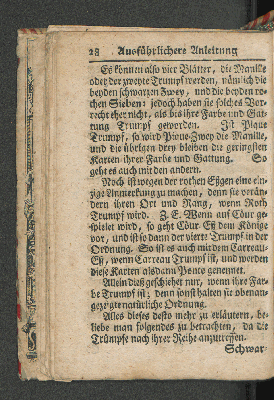 28 Ausführlichere Anleitung
Es können also vier Blätter, die Manille
oder der zweyte Trumpf werden, nämlich die
beyden schwarzen Zwey, und die beyden ro-
then Sieben: jedoch haben sie solches Vor-
recht eher nicht, als bis ihre Farbe und Gat-
tung Trumpf geworden. Ist Pique
Trumpf, so wird Pique-Zwey die Manille,
und die übrigen drey bleiben die geringsten
Karten ihrer Farbe und Gattung. So
geht es auch mit den andern.
Noch ist wegen der rothen Essen eine ein-
zige Anmerkung zu machen, denn sie verän-
dern ihren Ort und Rang, wenn Roth
Trumpf wird. Z. E. Wenn auf Cöur ge-
spielet wird, so geht Cöur Eß dem Könige
vor, und ist so dann der vierte Trumpf in der
Ordnung. So ist es auch mit dem Carreau-
Eß, wenn Carreau Trumpf ist, und werden
diese Karten alsdann Ponte genennet.
Allein dieß geschiehet nur, wenn ihre Far-
be Trumpf ist; denn sonst halten sie obenan-
gezeigte natürliche Ordnung.
Alles dieses desto mehr zu erläutern, be-
liebe man folgendes zu betrachten, da die
Trümpfe nach ihrer Reihe anzutreffen.
Schwar-